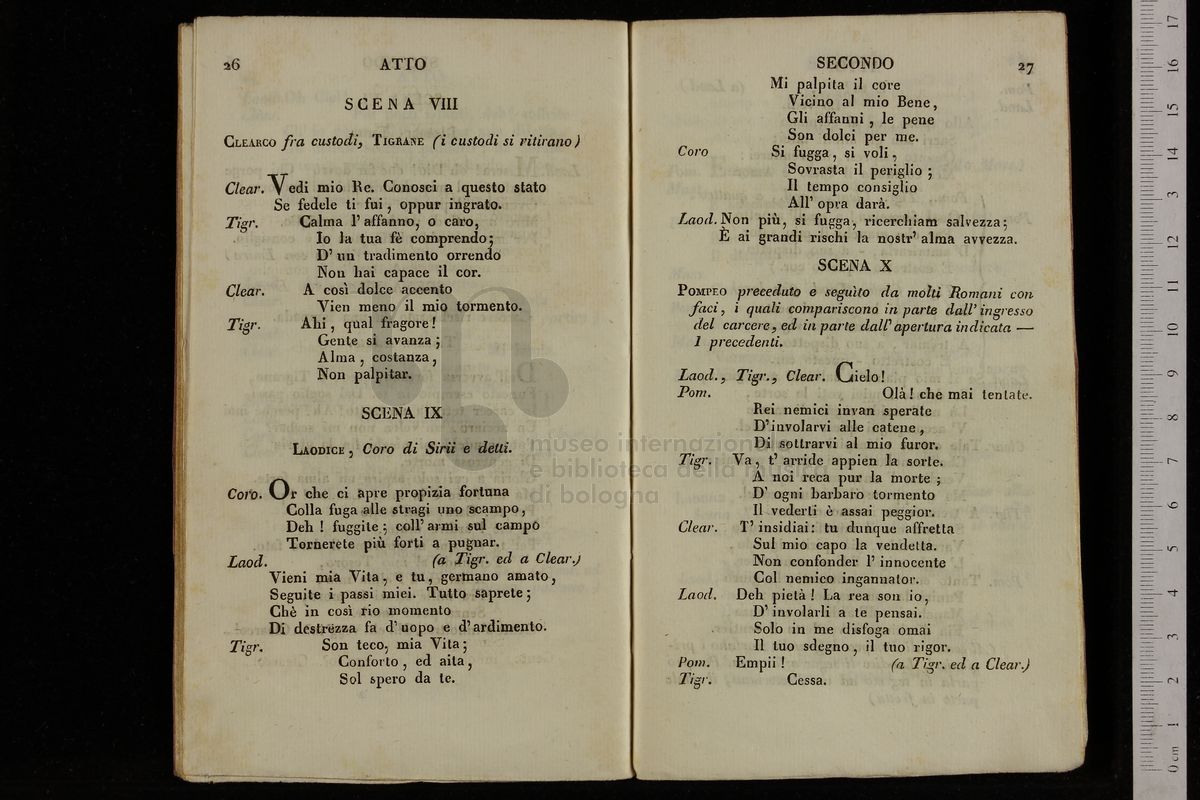 26 ATTO
SCENA VIII
CLEARCO fra custodi, TIGRANE (i custodi si ritirano)
Clear. Vedi mio Re. Conosci a questo stato
Se fedele ti fui, oppur ingrato.
Tigr. Calma l'affanno, o caro,
Io la tua fè comprendo;
D'un tradimento orrendo
Non hai capace il cor.
Clear. A così dolce accento
Vien meno il mio tormento.
Tigr. Ahi, qual fragore!
Gente si avanza;
Alma, costanza,
Non palpitar.
SCENA IX
LAODICE, Coro di Sirii e detti.
Coro. Or che ci apre propizia fortuna
Colla fuga alle stragi uno scampo,
Deh! fuggite; coll'armi sul campo
Tornerete più forti a pugnar.
Laod. (a Tigr. ed a Clear.)
Vieni mia Vita, e tu, germano amato,
Seguite i passi miei. Tutto saprete;
Chè in così rio momento
Di destrezza fa d'uopo e d'ardimento.
Tigr. Son teco, mia Vita;
Conforto, ed aita,
Sol spero da te.
SECONDO 27
Mi palpita il core
Vicino al mio Bene,
Gli affanni, le pene
Son dolci per me.
Coro Si fugga, si voli,
Sovrasta il periglio;
Il tempo consiglio
All'opra darà.
Laod. Non più, si fugga, ricerchiam salvezza;
È ai grandi rischi la nostr'alma avvezza.
SCENA X
POMPEO preceduto e seguìto da molti Romani con
faci, i quali compariscono in parte dall'ingresso
del carcere, ed in parte dall'apertura indicata —
I precedenti.
Laod., Tigr., Clear. Cielo!
Pom. Olà! che mai tentate.
Rei nemici invan sperate
D'involarvi alle catene,
Di sottrarvi al mio furor.
Tigr. Va, t'arride appien la sorte.
A noi reca pur la morte;
D'ogni barbaro tormento
Il vederti è assai peggior.
Clear. T'insidiai: tu dunque affretta
Sul mio capo la vendetta.
Non confonder l'innocente
Col nemico ingannator.
Laod. Deh pietà! La rea son io,
D'involarli a te pensai.
Solo in me disfoga omai
Il tuo sdegno, il tuo rigor.
Pom. Empii! (a Tigr. ed a Clear.)
Tigr. Cessa.
museo internazionale
e biblioteca della musica
di bologna
0 cm 1 2 3 4 5 6 7 8 9 10 11 12 13 14 15 16 17